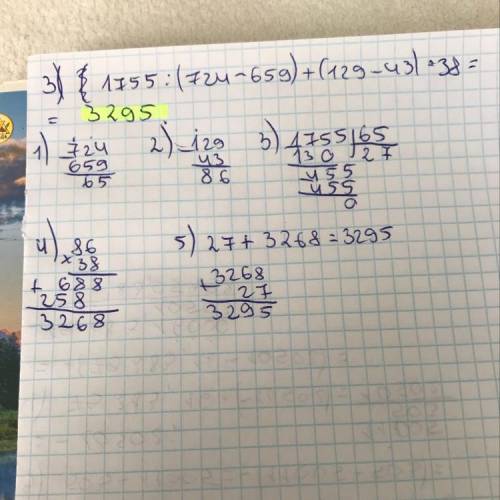 3) 1755 : (724 - 659) + (129 - 43) * 38 =
= 3295
1) 724
659
65
2) - 129
43
86
3) 1755 | 65
130 27
455
455
0
4) 86
x 38
+ 688
258
3268
5) 27 + 3268 = 3295
3268
+ 27
3295